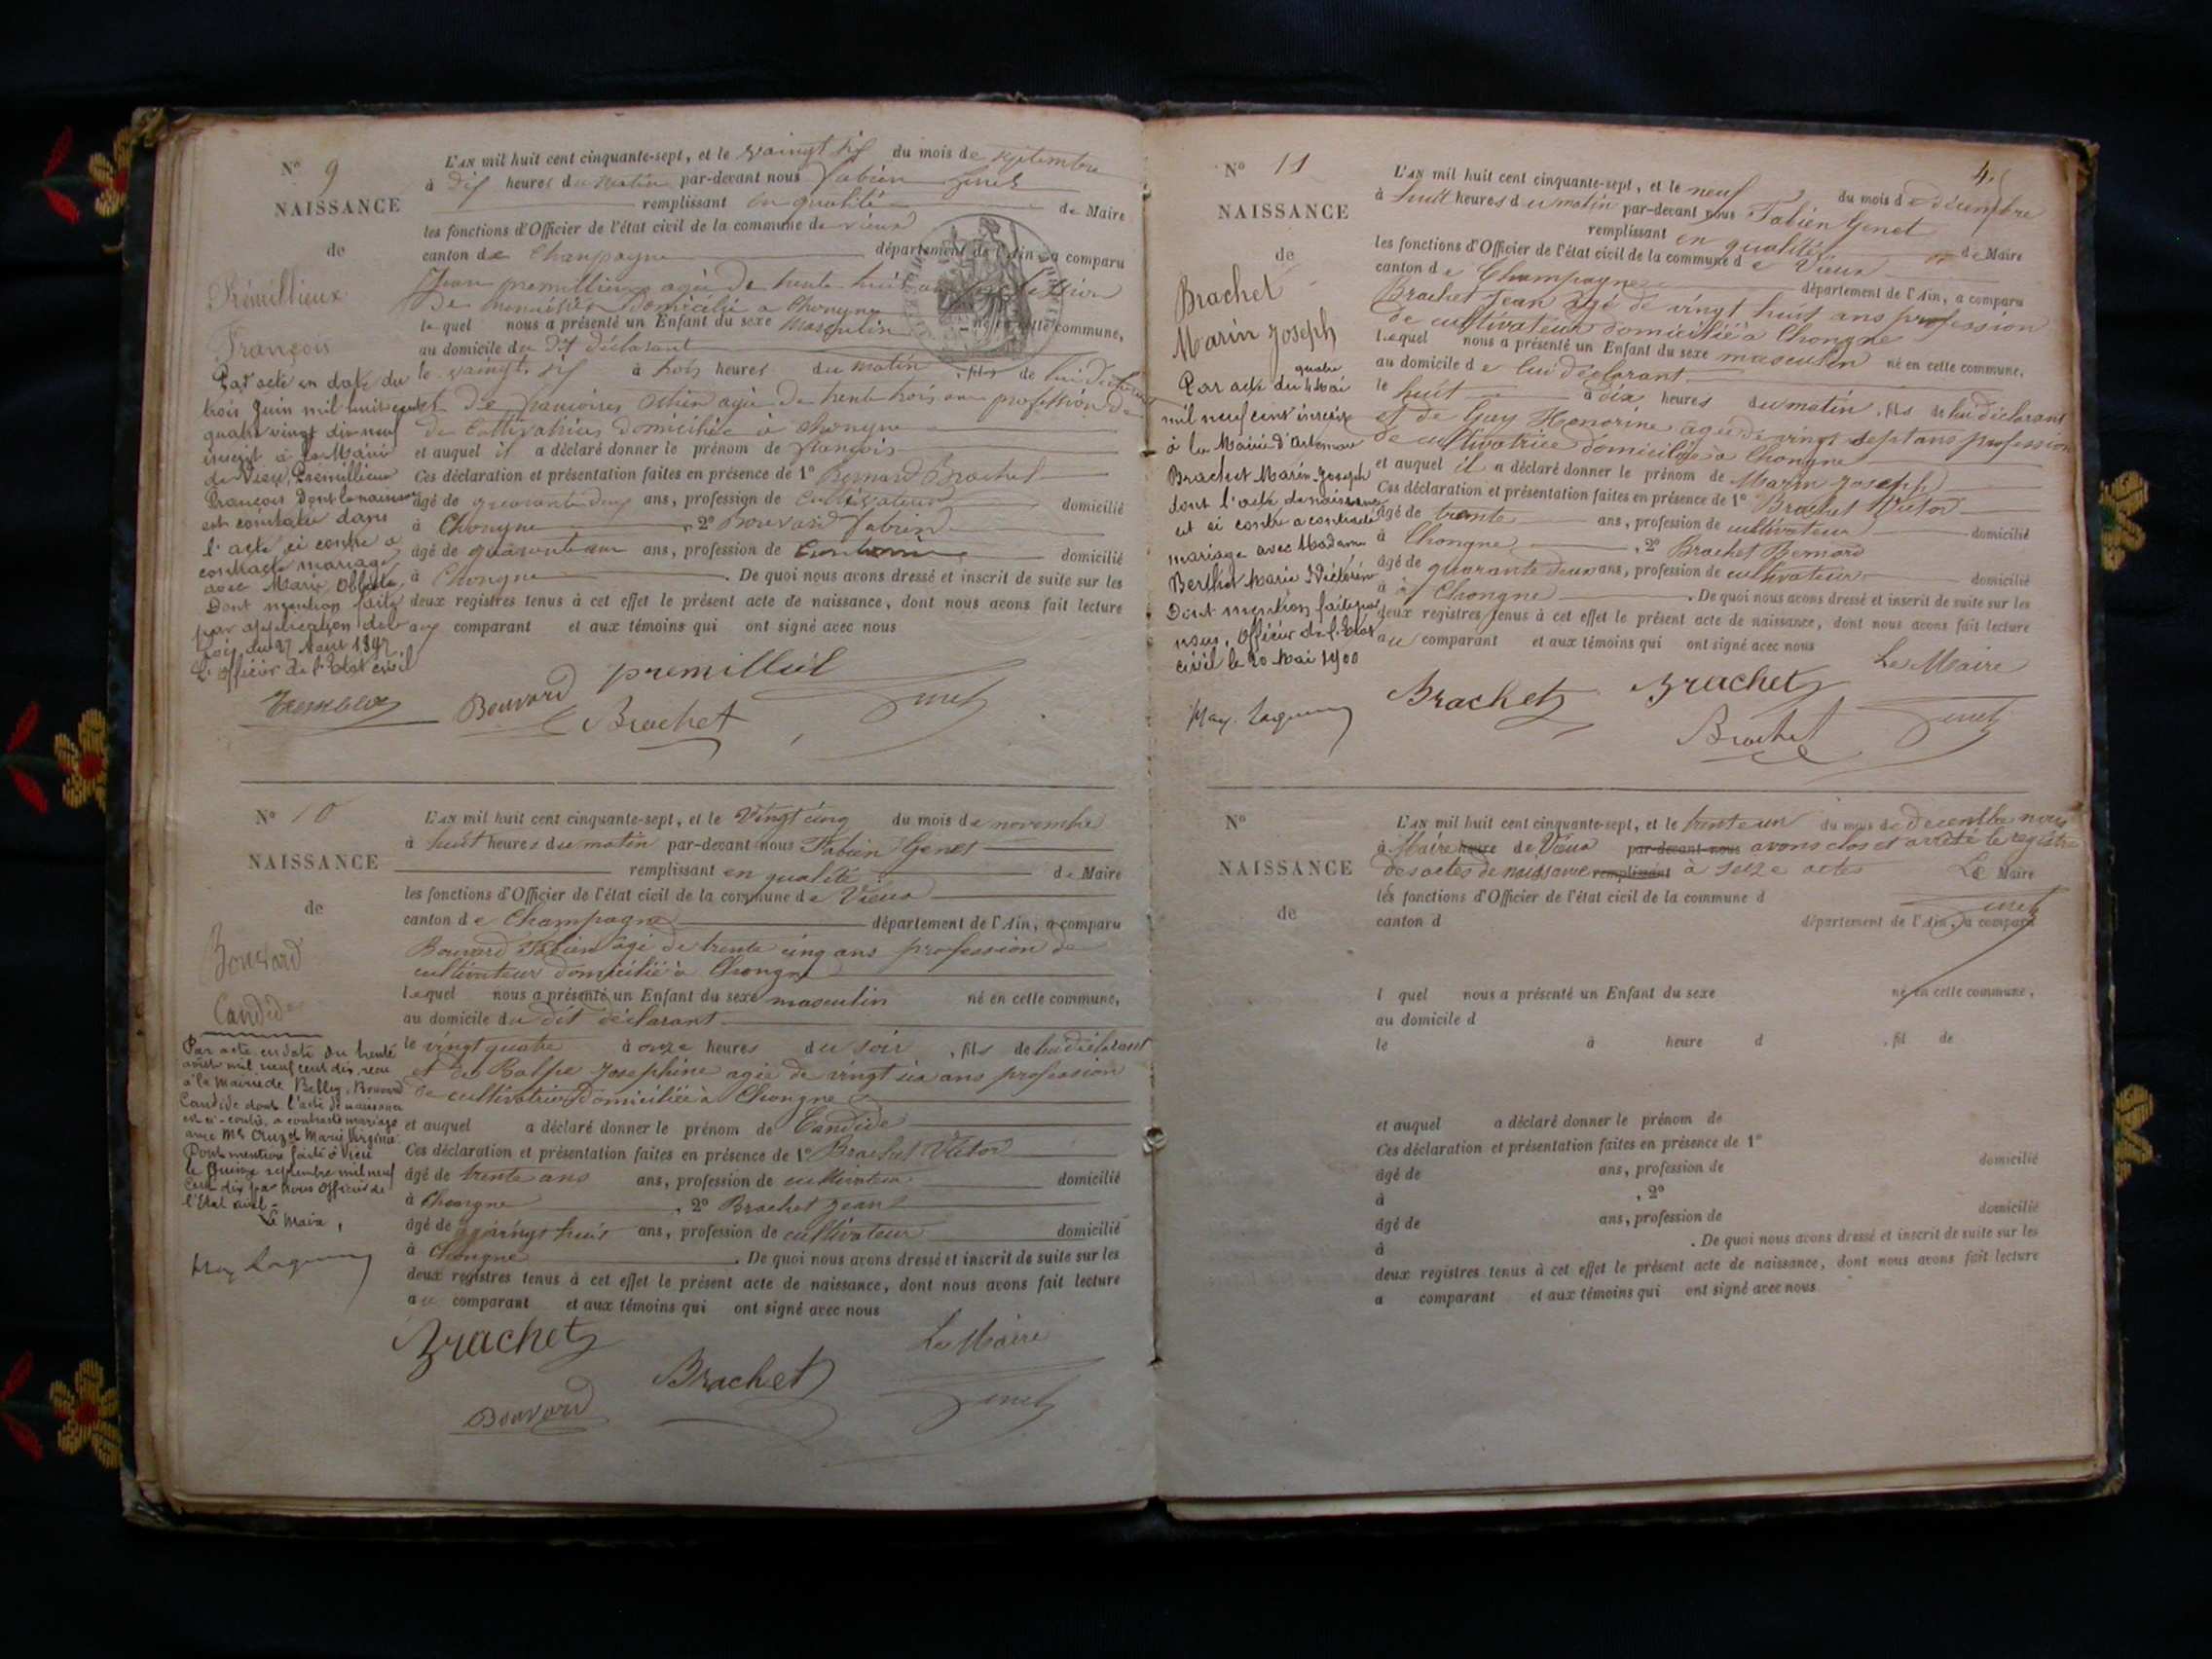 N° 9
NAISSANCE
de
Prémillieux
François
Par acte en date du
trois Juin mil huit cent
quatre vingt dix neuf
inscrit à la Mairie
de Vieu, Prémillieux
François dont la naissance
est constatée dans
l'acte ci contre a
contracté mariage
avec Marie
Dont mention faite
par application de la
Loi du 17 Août 1897.
L'officier de l'Etat civil
L'AN mil huit cent cinquante-sept, et le vaingt six du mois de septembre
à dix heures du matin par-devant nous fabien Genet
remplissant en qualité de Maire
les fonctions d'Officier de l'état civil de la commune de vieux
canton de Champagne département de l'Ain, a comparu
Jean premillieux agée de trente huit ans profession
de domicilié a Chongne
lequel nous a présenté un Enfant du sexe masculin né en cette commune,
au domicile du dit déclarant
le vaingt six à trois heures du matin, fils de lui déclarant
et de françoise agée de trente trois ans profession de
de Cultivatrice domiciliée à chongne
et auquel il a déclaré donner le prénom de françois
Ces déclaration et présentation faites en présence de 1° Bernard Brachet
âgé de quarante deux ans, profession de Cultivateur domicilié
à Chongne, 2° Bouvard fabien
âgé de quarante ans, profession de domicilié
à Chongne. De quoi nous avons dressé et inscrit de suite sur les
deux registres tenus à cet effet le présent acte de naissance, dont nous avons fait lecture
au comparant et aux témoins qui ont signé avec nous
Bouvard premilleil
Brachet Genet
N° 10
NAISSANCE
de
Bouvard
Candide
Par acte en date du trente
août mil neuf cent dix, reçu
à la Mairie de Belley, Bouvard
Candide dont l'acte de naissance
est ci-contre, a contracté mariage
avec Me Cruzel Marie Virginie.
Dont mention faite à Vieu
le quinze septembre mil neuf
cent dix par nous Officier de
l'Etat civil.
Le Maire,
L'AN mil huit cent cinquante-sept, et le Vingt cinq du mois de novembre
à huit heures du matin par-devant nous Fabien Genet
remplissant en qualité de Maire
les fonctions d'Officier de l'état civil de la commune de Vieux
canton de Champagne département de l'Ain, a comparu
Bouvard Fabien agé de trente cinq ans profession de
cultivateur domicilié à Chongne
lequel nous a présenté un Enfant du sexe masculin né en cette commune,
au domicile du dit déclarant
le vingt quatre à onze heures du soir, fils de lui déclarant
et de Balpe Josephine agée de vingt six ans profession
de cultivatrice domiciliée à Chongne
et auquel a déclaré donner le prénom de Candide
Ces déclaration et présentation faites en présence de 1° Brachet Victor
âgé de trente ans ans, profession de cultivateur domicilié
à Chongne, 2° Brachet Jean
âgé de vingt huit ans, profession de cultivateur domicilié
à Chongne. De quoi nous avons dressé et inscrit de suite sur les
deux registres tenus à cet effet le présent acte de naissance, dont nous avons fait lecture
au comparant et aux témoins qui ont signé avec nous
Brachet Le Maire
Brachet Genet
Bouvard
N° 11
NAISSANCE
de
Brachet
Marin Joseph
Par acte du quatre Mai
mil neuf cent inscrit
à la Mairie d'Artemare
Brachet Marin Joseph
dont l'acte de naissance
est ci contre a contracté
mariage avec Madame
Berthet Marie
Dont mention faite par
nous, Officier de l'Etat
civil le 20 Mai 1900
L'AN mil huit cent cinquante-sept, et le neuf du mois de décembre
à huit heures du matin par-devant nous Fabien Genet
remplissant en qualité de Maire
les fonctions d'Officier de l'état civil de la commune de Vieux
canton de Champagne département de l'Ain, a comparu
Brachet Jean agé de vingt huit ans profession
de cultivateur domicilié à Chongne
lequel nous a présenté un Enfant du sexe masculin né en cette commune,
au domicile de lui déclarant
le huit à dix heures du matin, fils de lui déclarant
et de Guy Honorine agée de vingt sept ans profession
de cultivatrice domiciliée a Chongne
et auquel il a déclaré donner le prénom de Marin Joseph
Ces déclaration et présentation faites en présence de 1° Brachet Victor
âgé de trente ans, profession de cultivateur domicilié
à Chongne, 2° Brachet Bernard
âgé de quarante deux ans, profession de cultivateur domicilié
à Chongne. De quoi nous avons dressé et inscrit de suite sur les
deux registres tenus à cet effet le présent acte de naissance, dont nous avons fait lecture
au comparant et aux témoins qui ont signé avec nous
Le Maire
Brachet Brachet
Brachet Genet
N°
NAISSANCE
de
L'AN mil huit cent cinquante-sept, et le trente un du mois de decembre nous
à Maire heure de Vieux par-devant nous avons clos et arrêté le registre
des actes de naissance remplissant à seize actes Le Maire
les fonctions d'Officier de l'état civil de la commune d
Genet
canton d département de l'Ain, a comparu
l quel nous a présenté un Enfant du sexe né en cette commune,
au domicile d
le à heure d, fil de
et auquel a déclaré donner le prénom de
Ces déclaration et présentation faites en présence de 1°
âgé de ans, profession de domicilié
à, 2°
âgé de ans, profession de domicilié
à. De quoi nous avons dressé et inscrit de suite sur les
deux registres tenus à cet effet le présent acte de naissance, dont nous avons fait lecture
a comparant et aux témoins qui ont signé avec nous